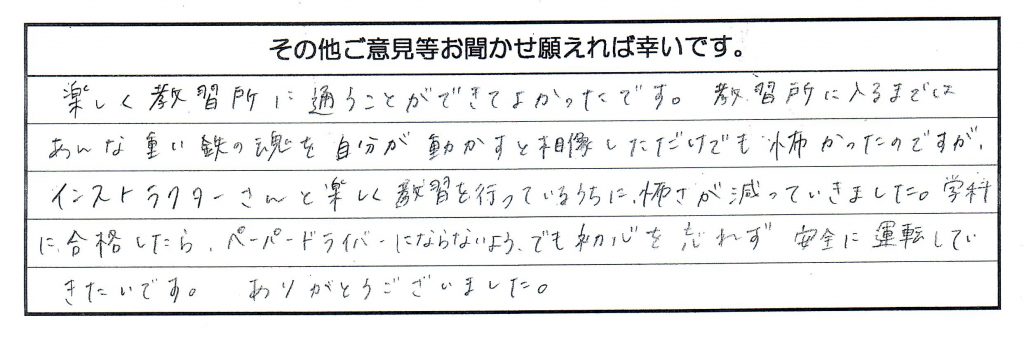 その他ご意見等お聞かせ願えれば幸いです。
楽しく教習所に通うことができてよかったです。 教習所に入るまでは
あんな重い鉄の魂を自分が動かすと相像しただけでも怖かったのですが、
インストラクターさんと楽しく教習を行っているうちに、怖さが減っていきました。学科
に合格したら、ペーパードライバーにならないよう、でも初心を忘れず 安全に運転してい
きたいです。 ありがとうございました。